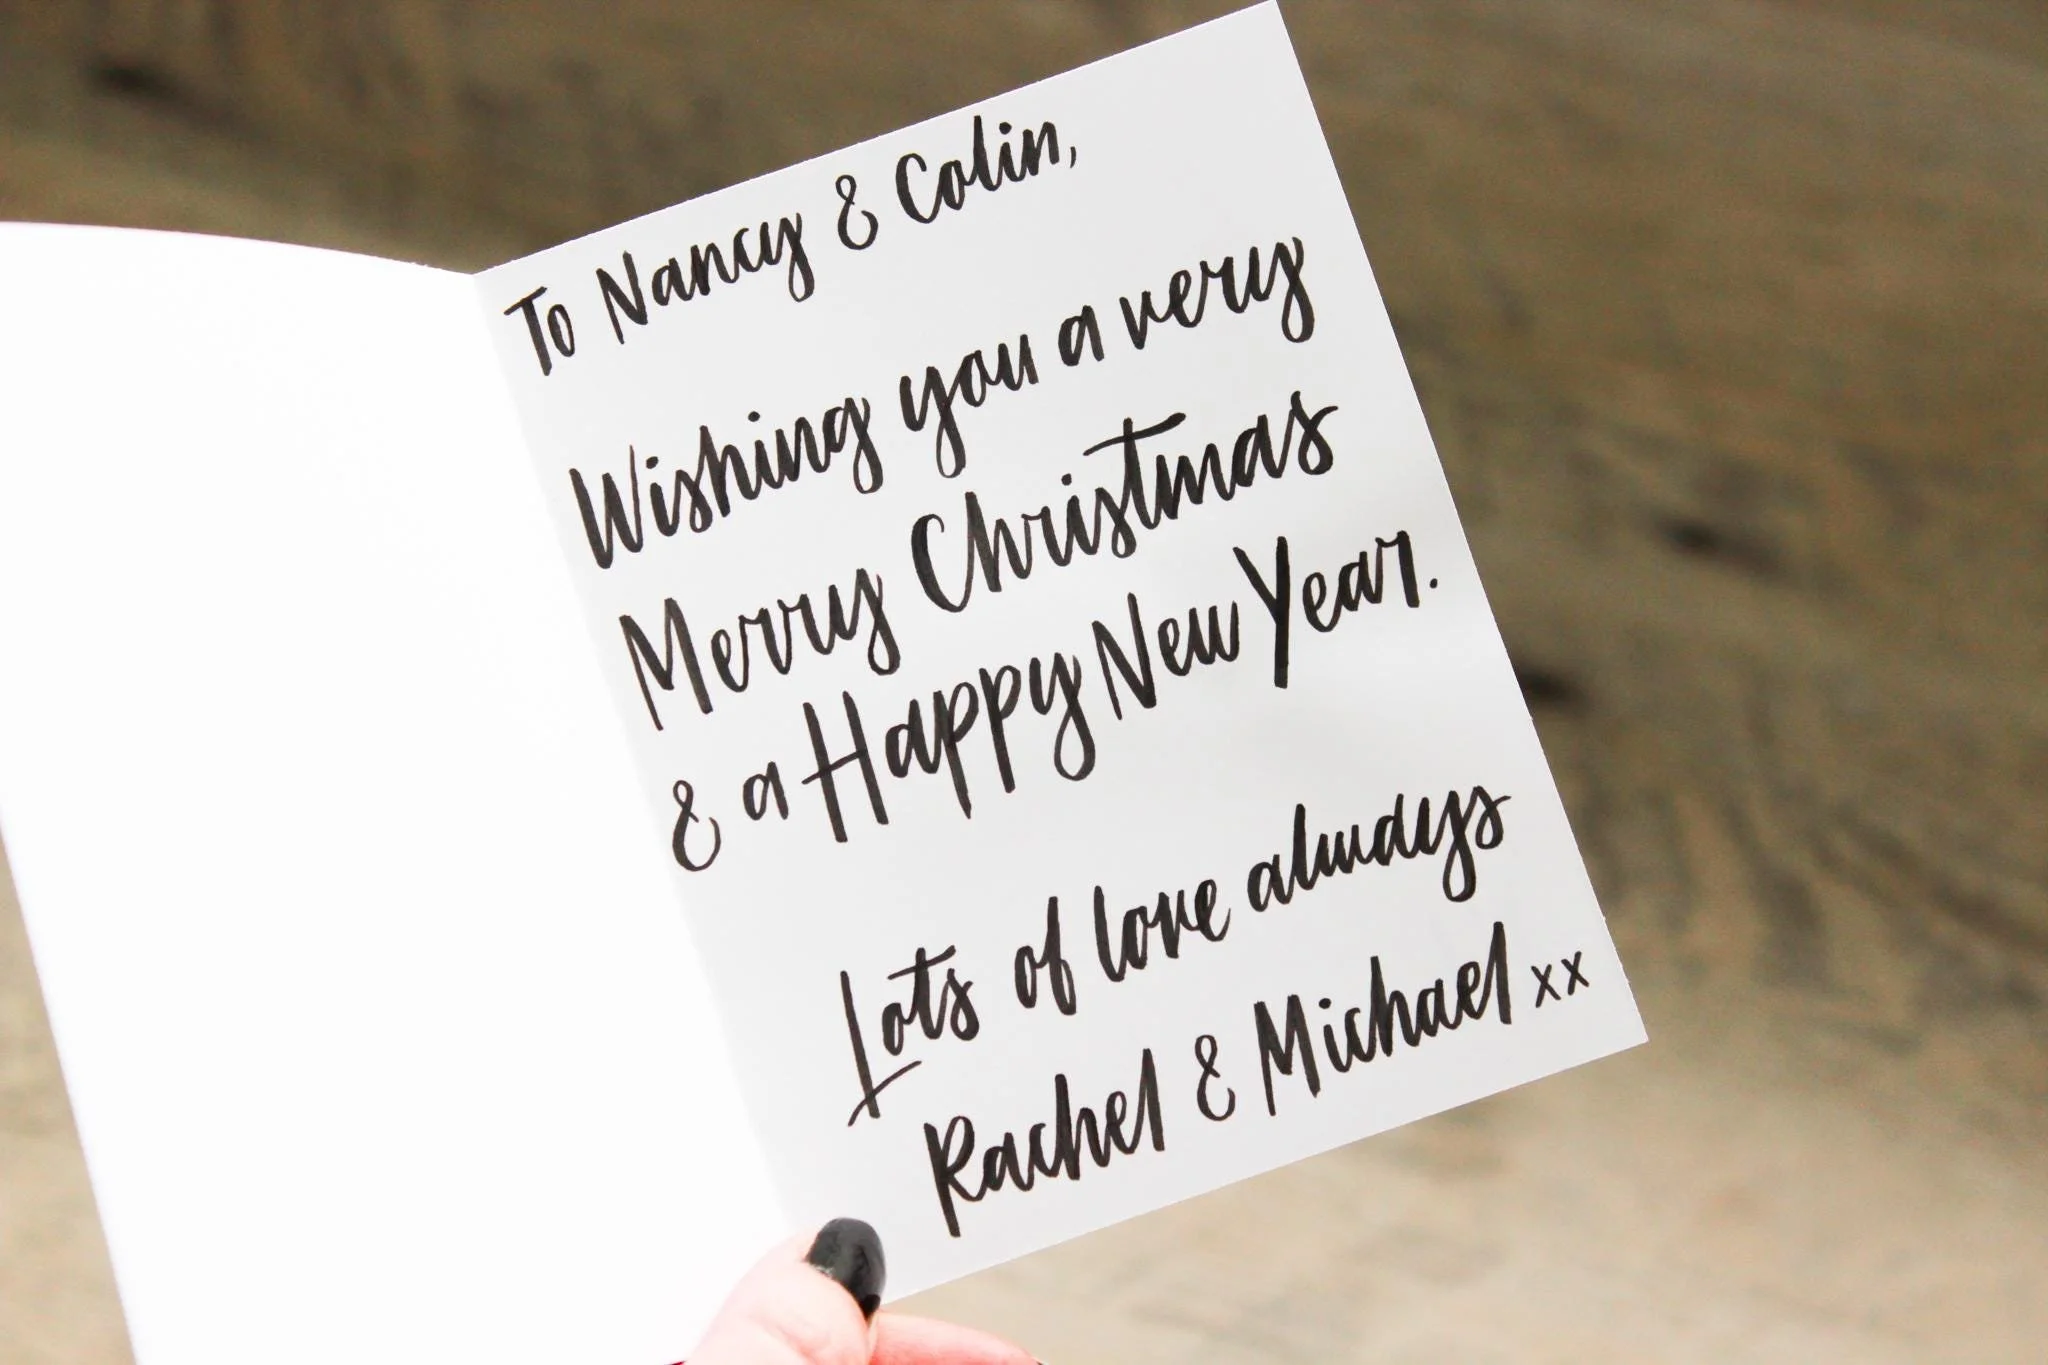 To Nancy & Colin,
Wishing you a very
Merry Christmas
& a Happy New Year.
Lots of love always
Rachel & Michael xx